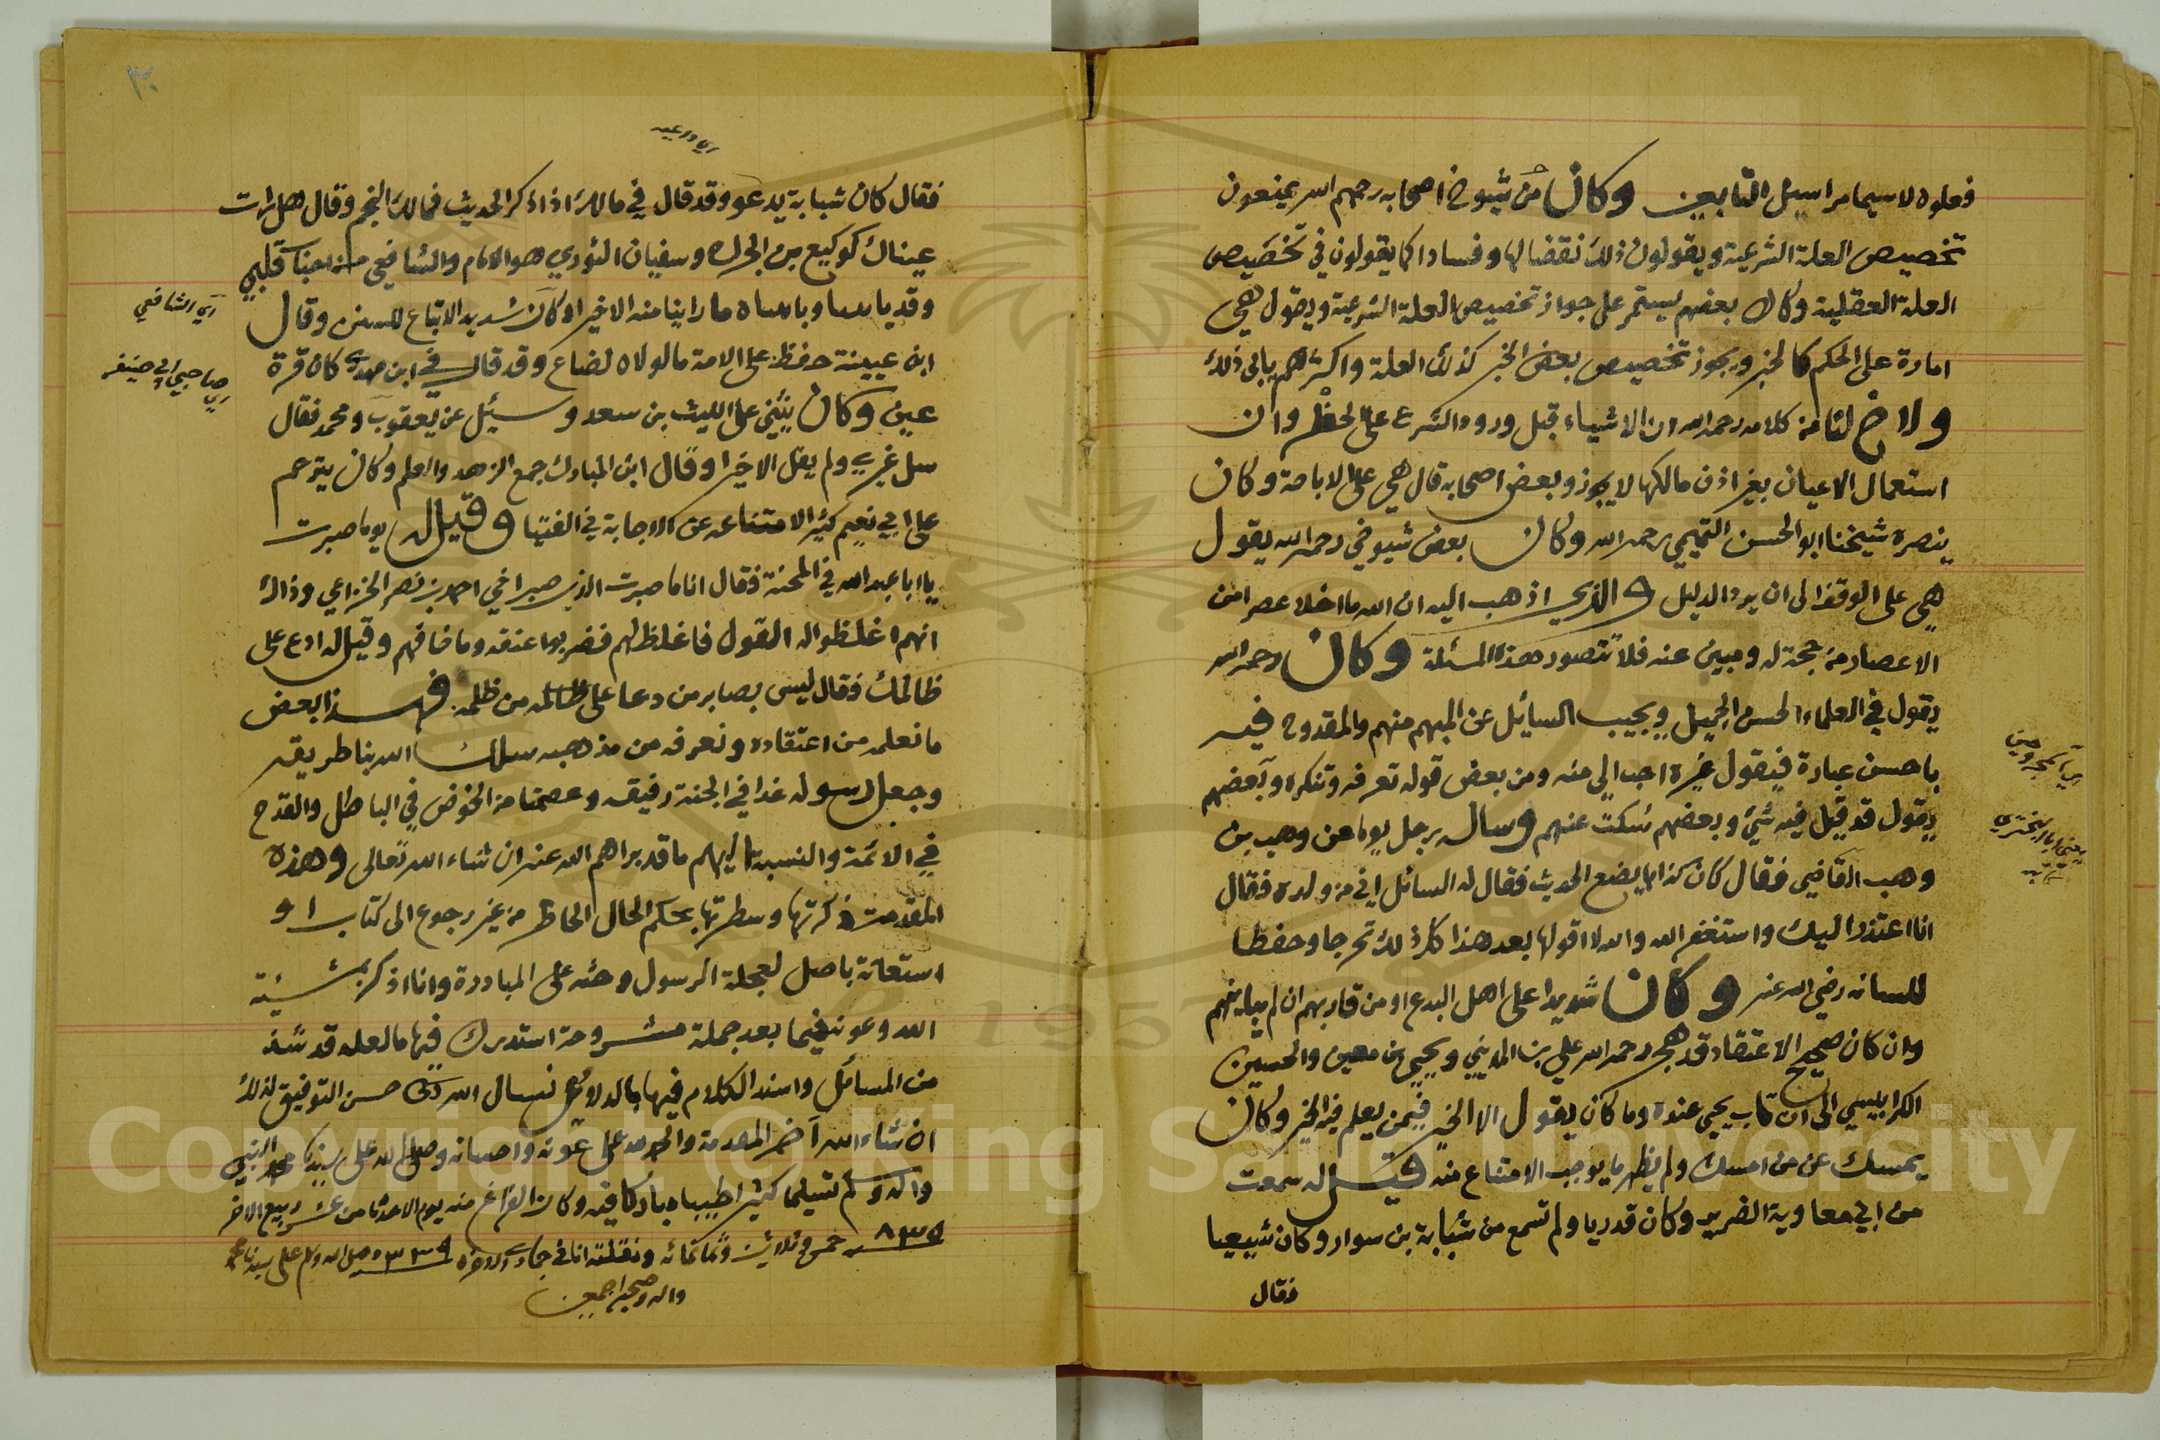 فعلوه لا سيما مراسيل التابعين وكان من شيوخ اصحابه رحمهم الله يمنعون
تخصيص العلة الشرعية ويقولون ذلك نقضا لها وفسادا كما يقولون في تخصيص
العلة العقلية وكان بعضهم يستمر على جواز تخصيص العلة الشرعية ويقول هي
امارة على الحكم كالخبر ويجوز تخصيص بعض الخبر كذلك العلة واكثرهم يابى ذلك
ولاح لنا من كلامه رحمه الله ان الاشياء قبل ورود الشرع على الحظر وان
استعمال الاعيان بغير اذن مالكها لا يجوز وبعض اصحابه قال هي على الاباحة وكان
ينصره شيخنا ابو الحسن التميمي رحمه الله وكان بعض شيوخي رحمه الله يقول
هي على الوقف الى ان يرد الدليل والذي اذهب اليه ان الله ما اخلا عصرا من
الاعصار من حجة له ومبين عنه فلا تتصور هذه المسئلة وكان رحمه الله
يقول في العلماء الحسن الجميل ويجيب السائل عن المبهم منهم والمقدوح فيه
باحسن عبارة فيقول غيره احب الي منه ومن بعض قوله تعرفه وتنكره وبعضهم
يقول قد قيل فيه شيء وبعضهم سكت عنهم وساله رجل يوما عن وهب بن
وهب القاضي فقال كان كذابا يضع الحديث فقال له السائل اني من ولده فقال
انا اعتذر اليك واستغفر الله والله لا اقولها بعد هذا كل ذلك تحرجا وحفظا
للسانه رضي الله عنه وكان شديدا على اهل البدع او من قاربهم ان لم يباينهم
وان كان صحيح الاعتقاد قد هجر رحمه الله علي بن المديني ويحيى بن معين والحسين
الكرابيسي الى ان تاب يحيى عنده وما كان يقول الا الخير فيمن يعلم فيه الخير وكان
يمسك عن من امسك ولم يظهر ما يوجب الامتناع منه قيل له سمعت
من ابي معاوية الضرير وكان قدريا ولم تسمع من شبابة بن سوار وكان شيعيا
فقال
يعني ابا البختري
فقال كان شبابة يدعو وقد قال في مالك اذا ذكر الحديث فمالك النجم وقال هل رات
عيناك كوكيع بن الجراح وسفيان الثوري هو الامام والشافعي من احباب قلبي
وقد يابسا وبابساه ما راينا منه الا خيرا وكان شديد الاتباع للسنن وقال
ابن عيينة حفظ على الامة ما لولاه لضاع وقد قال في ابن مهدي كان قرة
عين وكان يثني على الليث بن سعد وسئل عن يعقوب ومحمد فقال
سل غيري ولم يقل الا خيرا وقال ابن المبارك جمع الزهد والعلم وكان يترحم
على ابي نعيم كثير الامتناعه عن الاجابة في الفتيا وقيل له يوما صبرت
يا ابا عبد الله في المحنة فقال انا ما صبرت الذي صبر اخي احمد بن نصر الخزاعي وذاك
انهم اغلظوا له القول فاغلظ لهم فضربوا عنقه وما خافهم وقيل له ادع على
ظالمك فقال ليس بصابر من دعا على ظالمه من ظلمه فهذا بعض
ما نعلمه من اعتقاده ونعرفه من مذهبه سلك الله بنا طريقه
وجعل رسوله غدا في الجنة رفيقه وعصمنا من الخوض في الباطل والقدح
في الائمة والنسبة اليهم ما قد براهم الله عنه ان شاء الله تعالى وهذه
المقدمة ذكرتها وسطرتها بحكم الحال الحاظر من غير رجوع الى كتاب او
استعانة باصل لعجلة الرسول وحثه على المبادرة وانا اذكر بمشيئة
الله وعونه فيما بعد جملة مشروحة استدرك فيها ما لعله قد شذ
من المسائل واسند الكلام فيها بالدلائل نسال الله حسن التوفيق لذلك
ان شاء الله آخر المقدمة والحمد لله على عونه واحسانه وصلى الله على سيدنا محمد النبي
واله وسلم تسليما كثيرا طيبا مباركا فيه وكان الفراغ منه يوم الاحد ثامن عشر ربيع الاخر
٨٣٥ خمس وثلاثين وثمانمائه ونقلته انا في جماد الاخره ١٣٣٥ وصلى الله وسلم على سيدنا محمد
واله وصحبه اجمعين
اي الشافعي
اي صاحبي ابي حنيفه